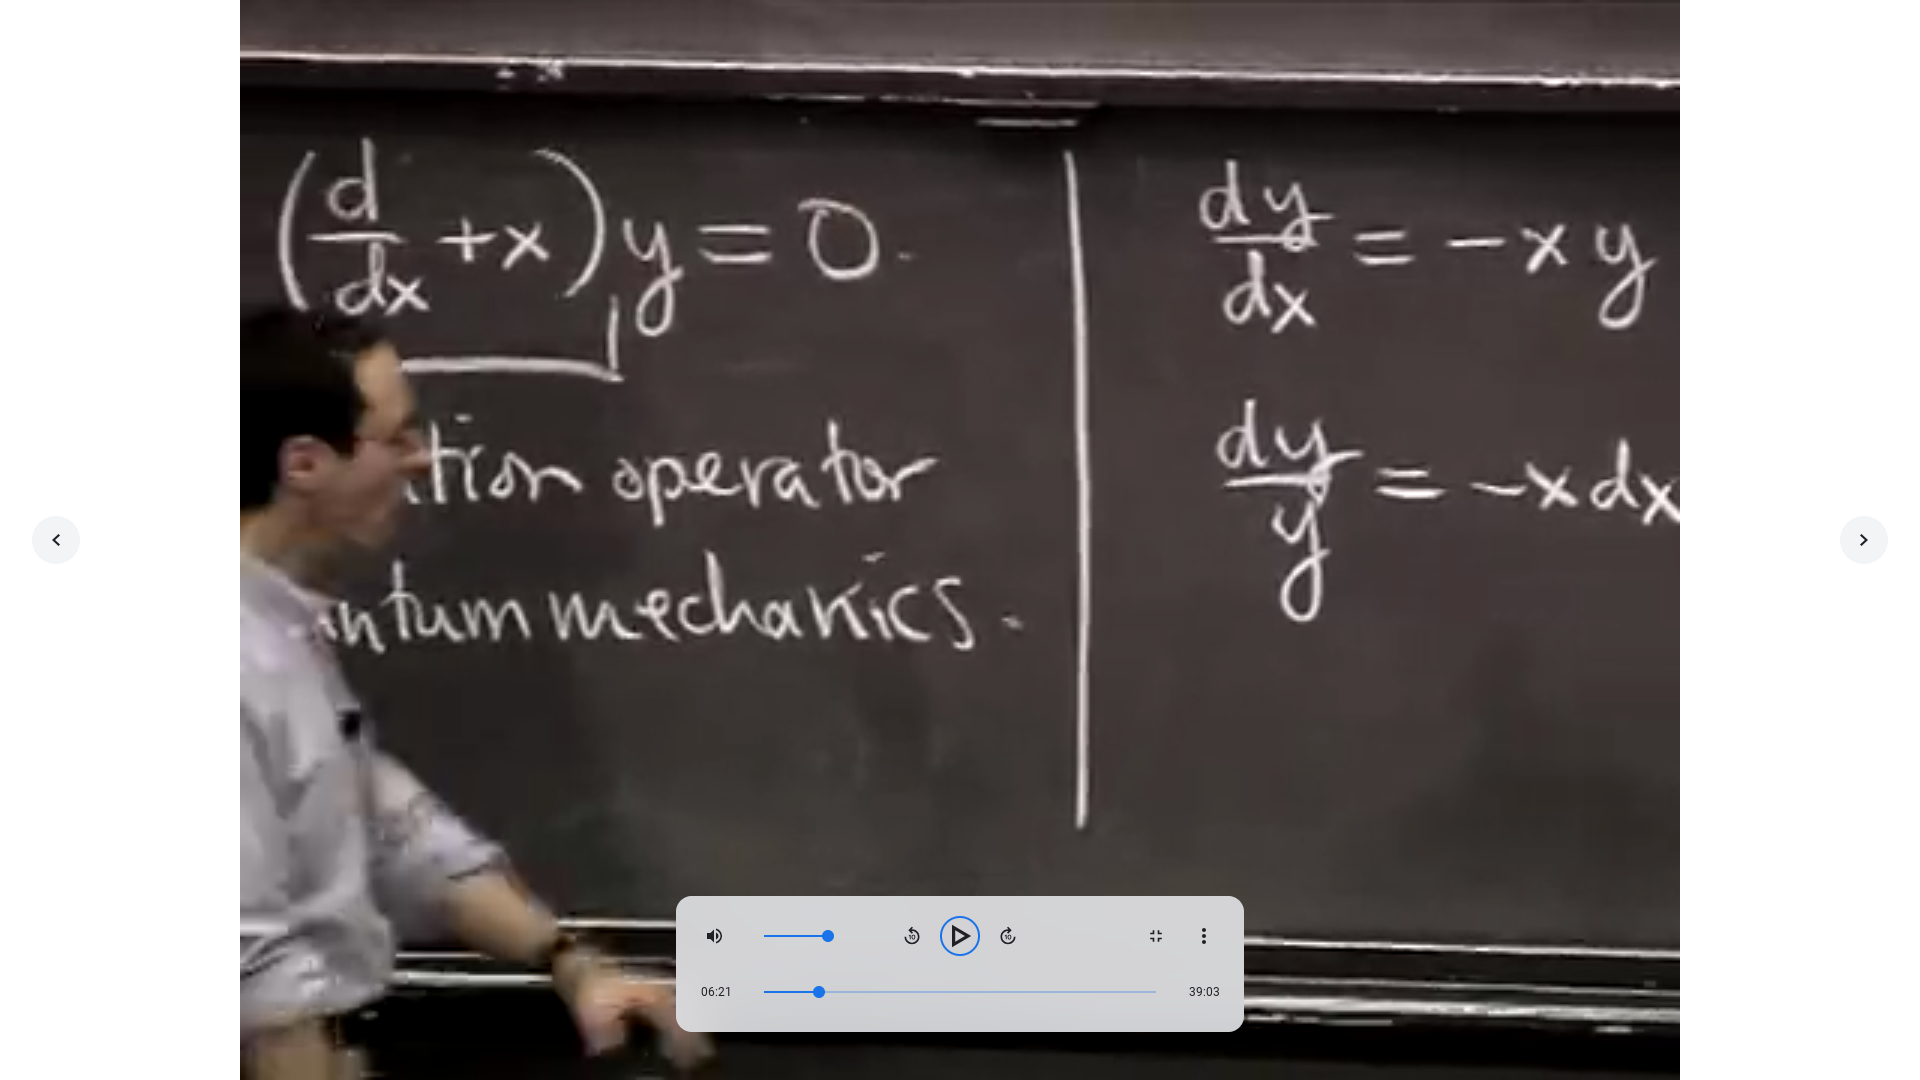 (d/dx + x) y = 0.
tion operator
ntum mechanics.
dy/dx = -x y
dy/y = -x dx
10
10
06:21
39:03